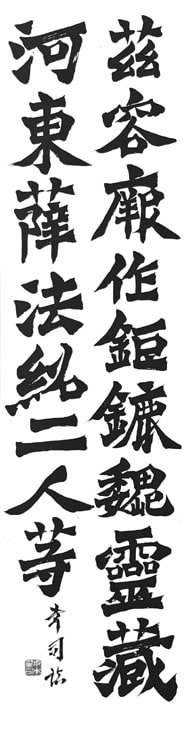 茲容厥作鉅鏕魏靈藏
河東薛法紹二人等
司臨